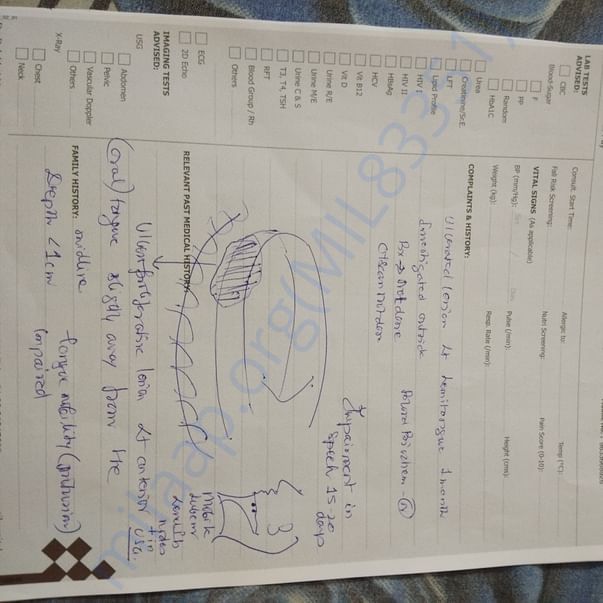 LAB TESTS ADVISED:
CBC
Blood-Sugar
F
PP
Random
HbA1C
Urea
Creatinine/Sr.E
LFT
Lipid Profile
HIV I
HIV II
HBsAg
HCV
Vit B12
Vit D
Urine R/E
Urine M/E
Urine C & S
T3, T4, TSH
RFT
Blood Group / Rh
Others
ECG
2D Echo
IMAGING TESTS ADVISED:
USG
Abdomen
Pelvic
Vascular Doppler
Others
X-Ray
Chest
Neck
Consult. Start Time:
Allergic to:
Fall Risk Screening:
Nutri Screening:
Pain Score (0-10):
VITAL SIGNS (As applicable)
Temp (°C):
BP (mm/Hg):
Pulse (/min):
Height (cms):
Weight (kg):
Resp. Rate (/min):
COMPLAINTS & HISTORY:
Ulcerated lesion Lt hemitongue 1 month
Investigated outside
Bx → not done
CT scan not done
Impairment in
speech 15 20
days
RELEVANT PAST MEDICAL HISTORY:
Ulceroproliferative lesion Lt anterior
(oral) tongue slightly away from the
midline
FAMILY HISTORY:
Depth <1cm
tongue mobility (protrusion)
impaired
mobile
nodes
USG
milaap.org(MIL8333